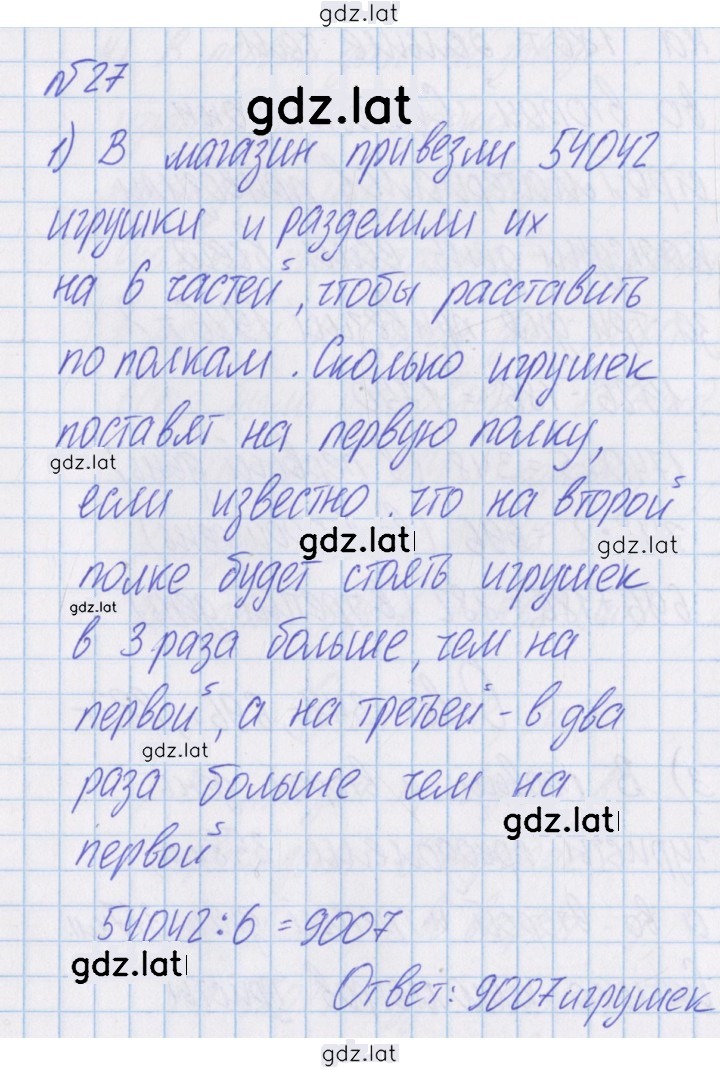 gdz.lat
№27
gdz.lat
1) В магазин привезли 54042
игрушки и разделили их
на 6 частей, чтобы расставить
по полкам. Сколько игрушек
поставят на первую полку,
gdz.lat
если известно. что на второй
gdz.lat
gdz.lat
полке будет стоять игрушек
gdz.lat
в 3 раза больше, чем на
первой, а на третьей - в два
gdz.lat
раза больше чем на
gdz.lat
первой
54042:6=9007
gdz.lat
Ответ: 9007 игрушек
gdz.lat